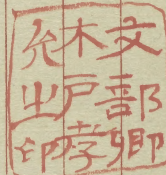 文部卿
木戸孝
允之印